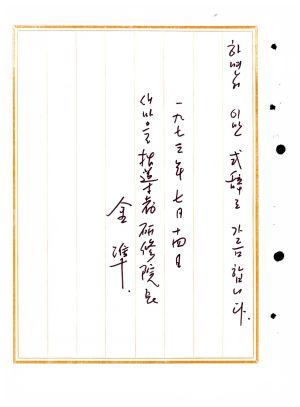 하면서 이만 式辭로 가름합니다.
一九七三年 七月 十四日
새마을指導者硏修院長
金 準.